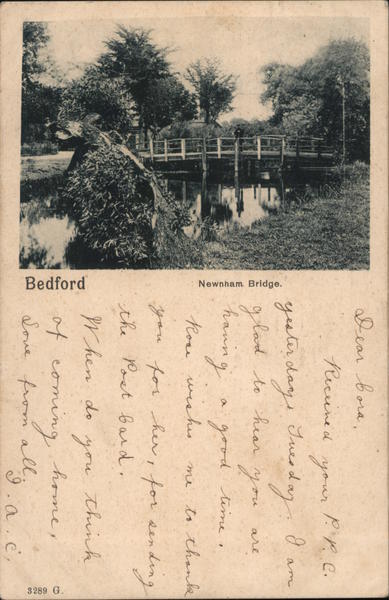 Bedford
Newnham Bridge.
Dear Cora,
Received your P.P.C.
yesterday Tuesday. I am
glad to hear you are
having a good time.
Rose wishes me to thank
you for her, for sending
the Post Card.
When do you think
of coming home,
Love from all,
I. A. C.
3289 G.